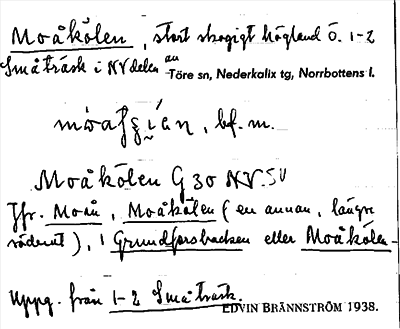 Moåkölen, stort skogigt högland Ö. 1-2
Småträsk i NV delen av
Töre sn, Nederkalix tg, Norrbottens l.
bf. m.
Moåkölen G 30 NV. SV
Jfr. Moån, Moåkölen (en annan, längre
söderut), 1 Grundforsbacken eller Moåkölen-
Uppg. från 1-2 Småträsk.
EDVIN BRÄNNSTRÖM 1938.